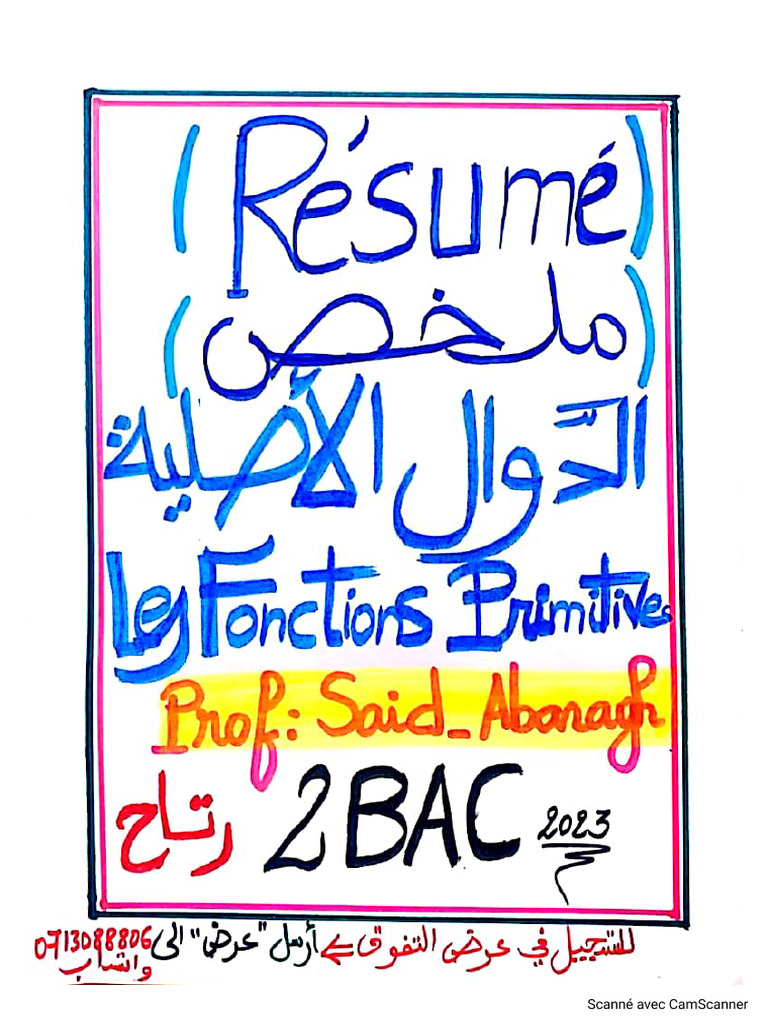 (Résumé)
(ملخص)
الدّوال الأصلية
Les Fonctions Primitives
Prof: Said_Abanagh
2BAC 2023
رتاح
للتسجيل في عرض التفوق أرسل "عرض" الى 0713088806
واتساب
Scanné avec CamScanner